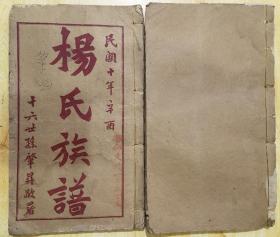 民國十年辛酉
楊氏族譜
十六世孫肇錦敬署